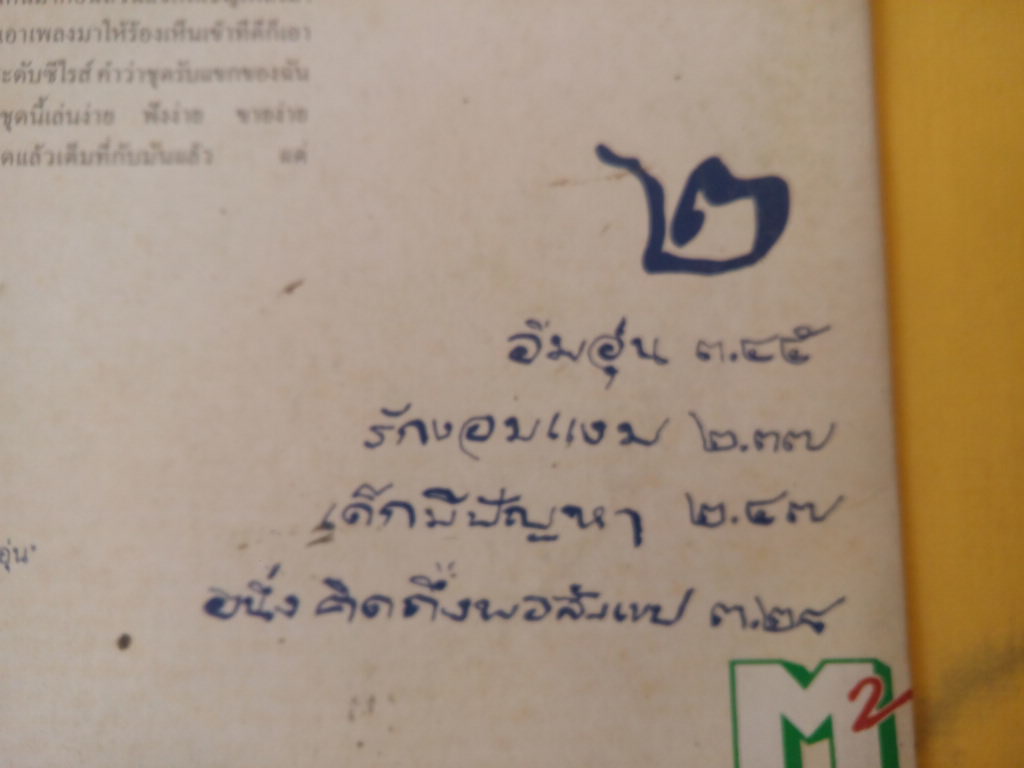 เอาเพลงมาให้ร้องเห็นเข้าที่ดีก็เอา
ระดับซีไรส์ คำว่าชุดรับแขกของฉัน
ชุดนี้เล่นง่าย ฟังง่าย ขายง่าย
ดแล้วเต็มที่กับมันแล้ว แต่
๒
อิ่มอุ่น ๓.๔๕
รักงอมแงม ๒.๓๗
เด็กมีปัญหา ๒.๔๗
อนึ่ง คิดถึงพอสังเขป ๓.๒๘
อุ่น"
M2